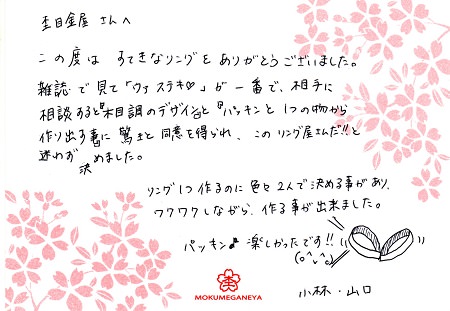 杢目金屋 さんへ
この度は すてきなリングを ありがとうございました。
雑誌で見て「ウァ ステキ♡」が一番で、相手に
相談すると『木目調のデザイン』と『パッキンと1つの物から
作り出す事』に 驚きと同意を得られ、このリング屋さんだ!!と
迷わず決めました。
リング1つ作るのに 色々2人で決める事があり、
ワクワクしながら、作る事が出来ました。
パッキン♪ 楽しかったです!!
(o^_^o)
小林・山口
MOKUMEGANEYA